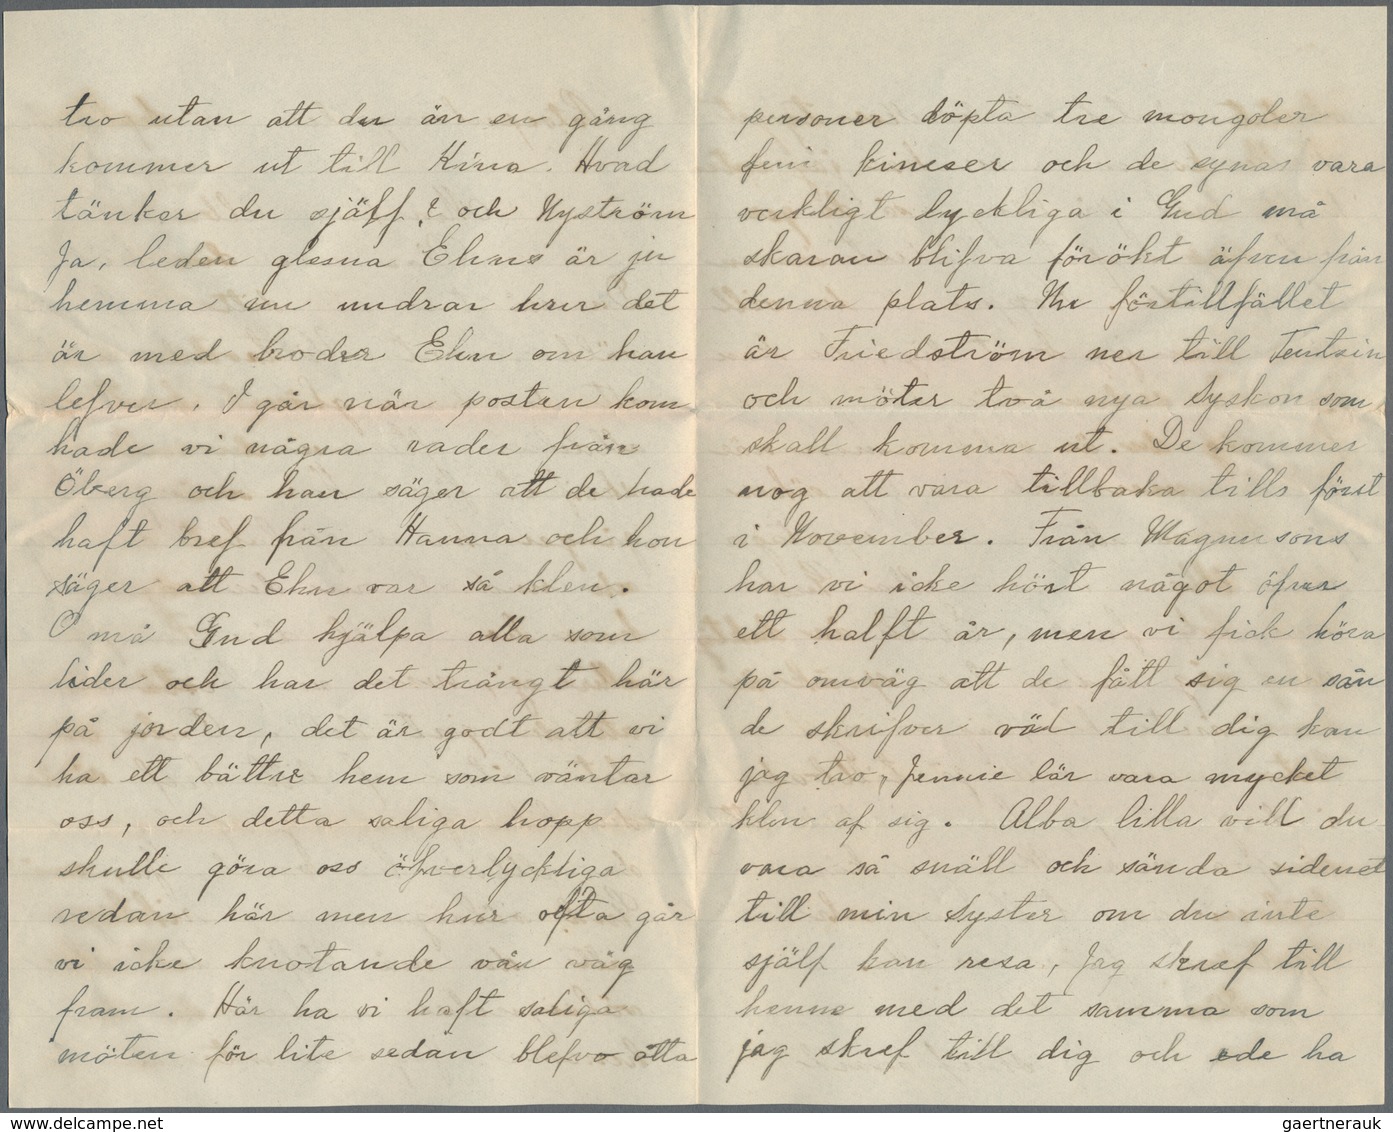 tro utan att du än en gång
kommer ut till Kina. Hvad
tänker du själf? och Nyström
Ja, leden glesna Ehns är ju
hemma nu undrar hur det
är med broder Ehn om han
lefver. I går när posten kom
hade vi några rader från
Öberg och han säger att de hade
haft bref från Hanna och hon
säger att Ehn var så klen.
O må Gud hjälpa alla som
lider och har det trångt här
på jorden, det är godt att vi
ha ett bättre hem som väntar
oss, och detta saliga hopp
skulle göra oss öfverlyckliga
redan här men hur ofta går
vi icke knotande vår väg
fram. Här ha vi haft saliga
möten för lite sedan blefvo åtta
personer döpta tre mongoler
fem kineser och de synas vara
verkligt lyckliga i Gud må
skaran blifva förökt äfven från
denna plats. Nu förtillfället
är Friedström ner till Tentsin
och möter två nya Syskon som
skall komma ut. De kommer
nog att vara tillbaka tills först
i November. Från Magnusons
har vi icke hört något öfver
ett halft år, men vi fick höra
på omväg att de fått sig en sån
de skrifver väl till dig kan
jag tro, Jennie lär vara mycket
klen af sig. Alba lilla vill du
vara så snäll och sända sidenet
till min Syster om du inte
själf kan resa, Jag skref till
henne med det samma som
jag skref till dig och ha
gaertnerauk
www.delcampe.net